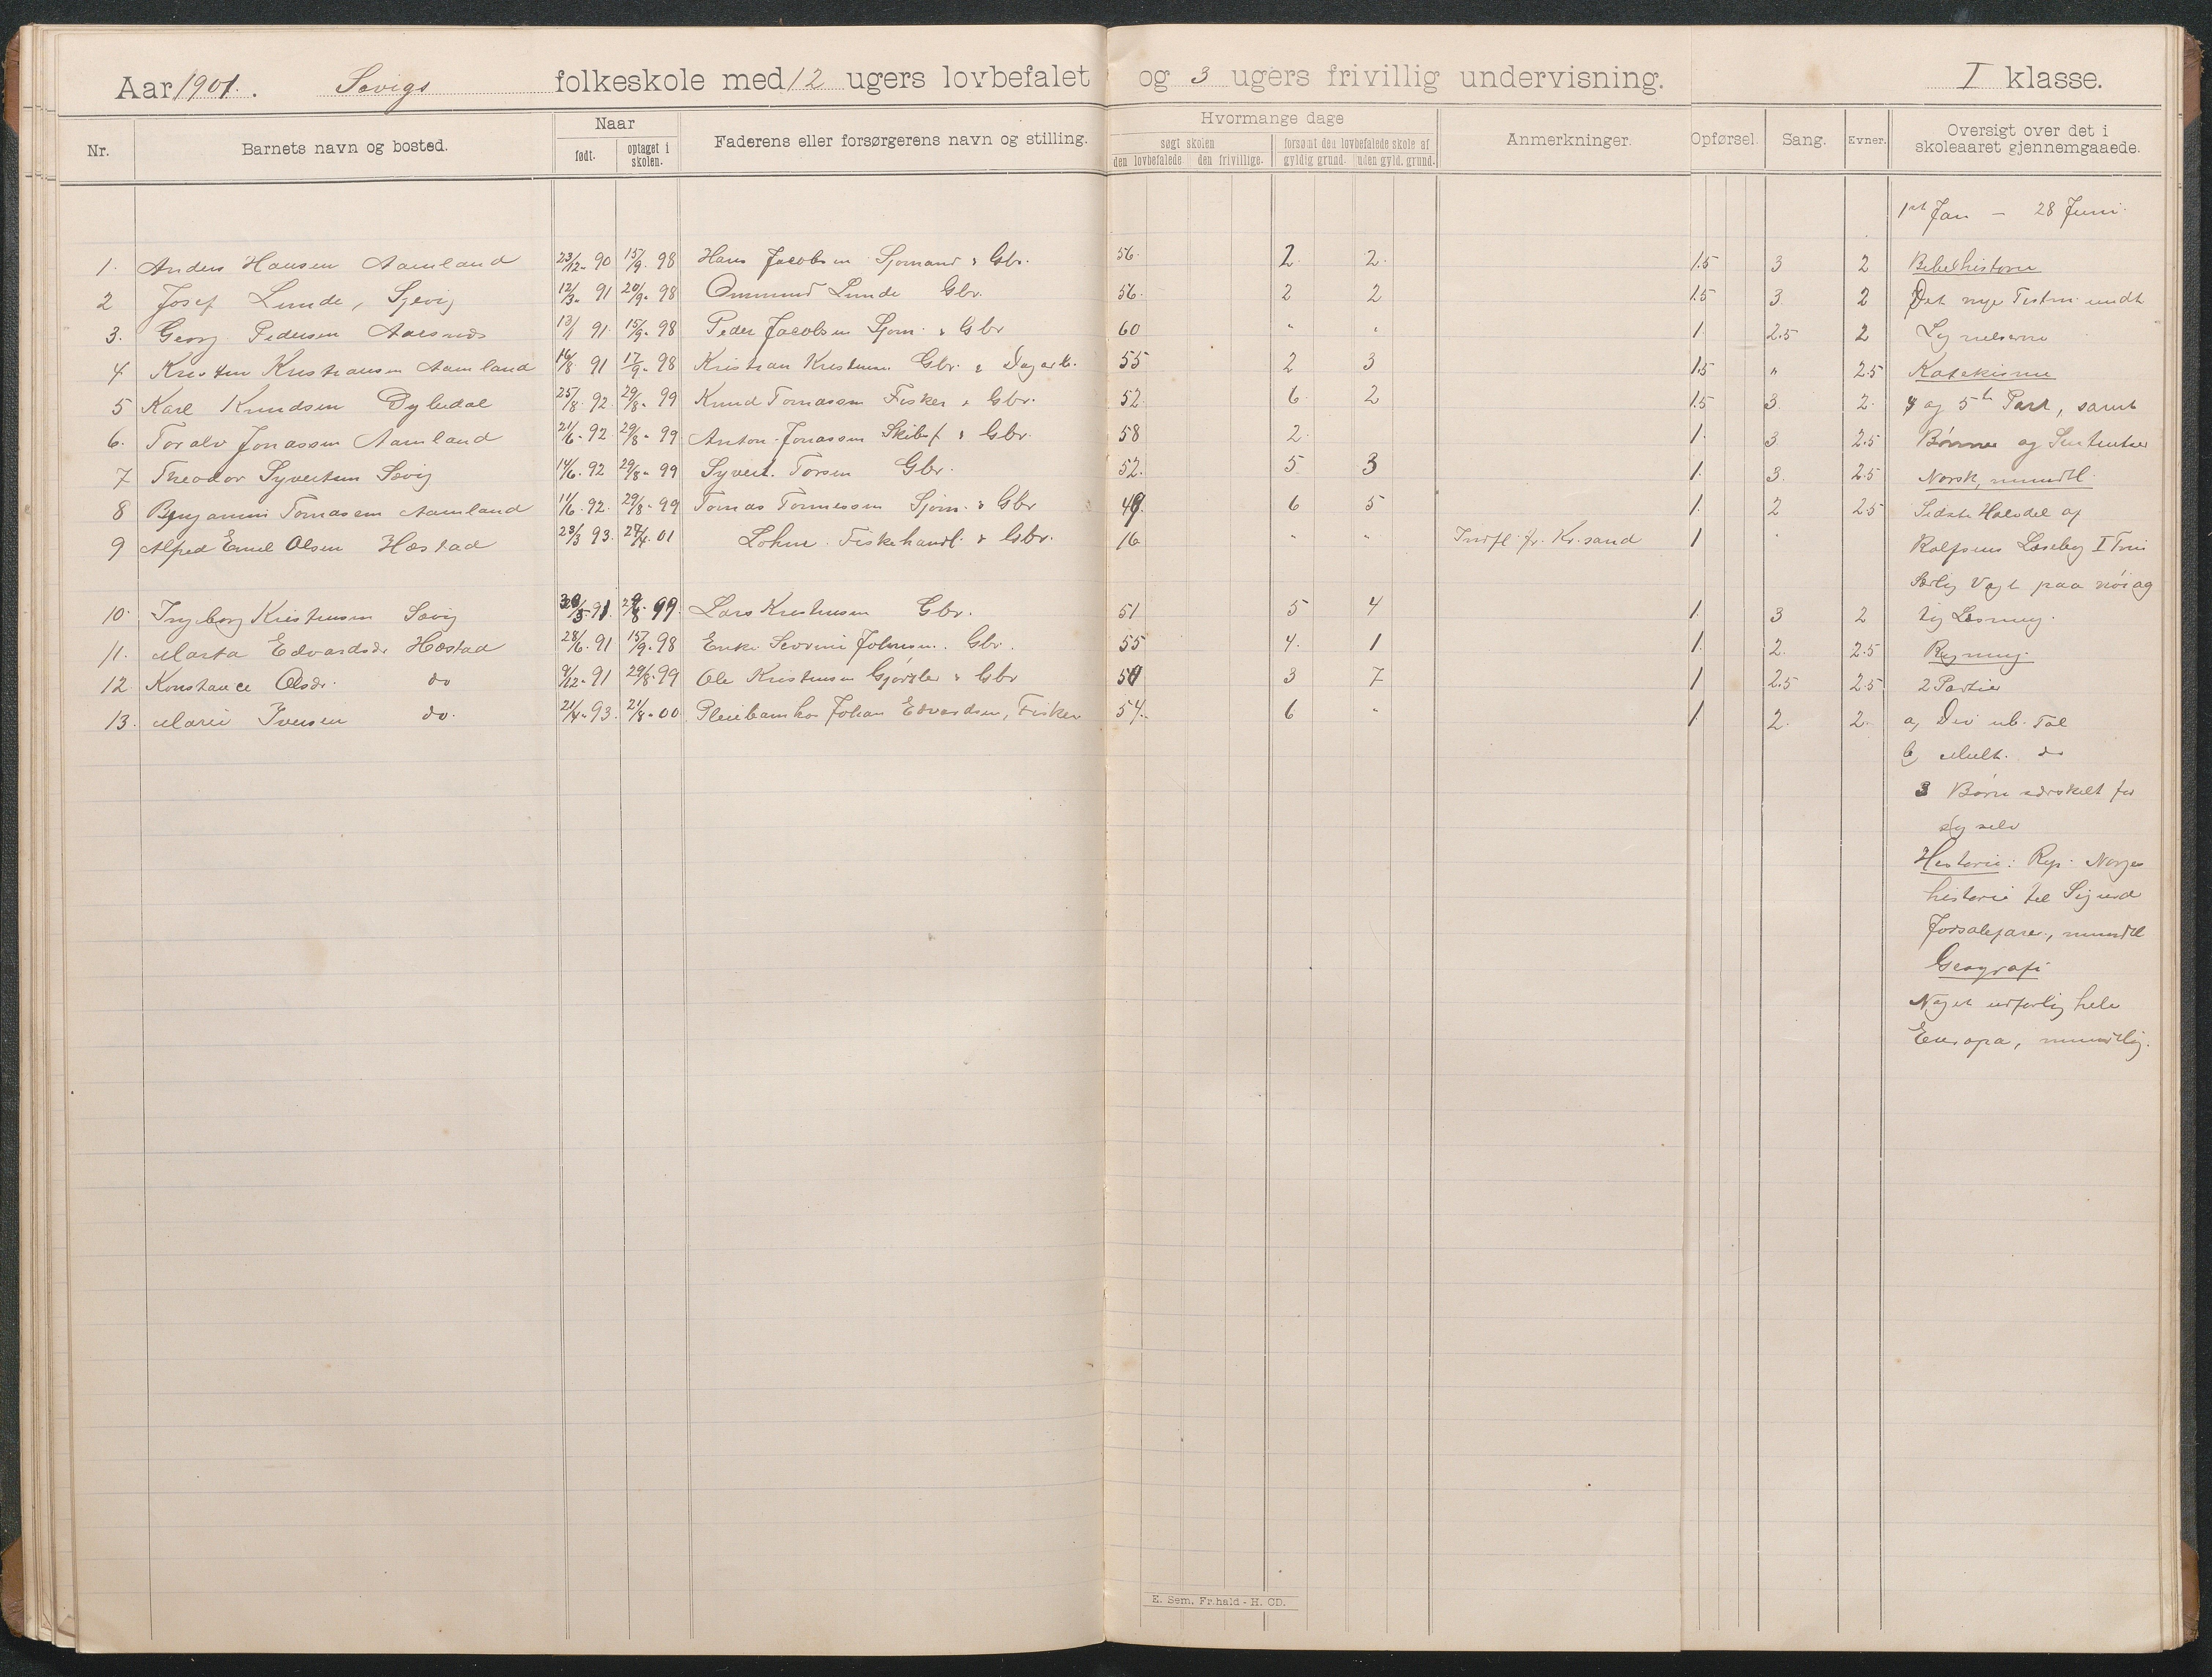 Aar 1901. Søvigs folkeskole med 12 ugers lovbefalet og 3 ugers frivillig undervisning. I klasse.
Nr. Barnets navn og bosted. Naar født. optaget i skolen. Faderens eller forsørgerens navn og stilling. Hvormange dage søgt skolen den lovbefalede. den frivillige. forsømt den lovbefalede skole af gyldig grund. uden gyld. grund. Anmerkninger. Opførsel. Sang. Evner. Oversigt over det i skoleaaret gjennemgaaede.
1st Jan – 28 Juni.
1. Anders Hansen Aamland 23/12- 90 15/9- 98 Hans Jacobsen Sjømand & Gbr. 56. 2 2. 1.5 3 2 Bibelhistorie
2 Josef Lunde, Sjevig 12/3- 91 20/9- 98 Ommund Lunde Gbr. 56. 2 2 1.5 3. 2 Det nye Testm. undt
3. Georg Pedersen Aarsnes 13/1 91. 15/9- 98 Peder Jacobsen Sjøm. & Gbr 60 " " 1. 2.5 2 Lignelserne
4 Kristen Kristiansen Aamland 16/8 91 17/9- 98 Kristian Kristensen Gbr. & Dagarb. 55 2 3 1.5 " 2.5 Katekisme
5 Karl Knudsen Dybedal 25/8. 92. 29/8- 99 Knud Tomassen Fisker & Gbr. 52. 6. 2 1.5 3. 2. 4 og 5te Part, samt
6. Toralv Jonassen Aamland 21/6- 92 29/8- 99 Anton Jonassen Skibsf. & Gbr. 58 2. 1. 3 2.5 Bønner og Sententser
7 Theodor Syvertsen Søvig 14/6. 92 29/8- 99 Syvert. Torsen Gbr. 52. 5 3 1. 3. 2.5 Norsk, mundtl.
8 Benjamin Tomassen Aamland 11/6- 92. 29/8- 99 Tomas Tønnessen Sjøm. & Gbr 49. 6 5 1. 2 2.5 Sidste Halvdel af
9 Alfred Emil Olsen Hæstad 23/3 93. 27/4. 01 Lohne Fiskehandl. & Gbr. 16 " " Indfl. fr. Kr.sand 1 " Rolfsens Læsebog I Trin
Særlig Vægt paa nøiag
10. Ingeborg Kristensen Søvig 30/5- 91. 29/8 99. Lars Kristensen Gbr. 51 5 4 1. 3 2 tig Læsning.
11. Marta Edvardsdr Hæstad 28/6. 91 15/9- 98 Enke Severine Johnsen. Gbr. 55 4. 1 1. 2. 2.5 Regning.
12. Konstance Olsdr. do 9/12- 91 29/8- 99 Ole Kristensen Gjørtler & Gbr 50 3 7 1 2.5 2.5 2 Partier
13. Marie Iversen do. 21/4- 93. 21/8- 00 Pleiebarn hos Johan Edvardsen, Fisker 54. 6 " 1. 2. 2. a, Div ub. Tal
b, Mult. do
3 Børn særskilt for
sig selv
Historie: Rep. Norges
historie til Sigurd
Jorsalefarer, mundtl
Geografi
Noget udførlig hele
Europa, mundtlig.
E. Sem. Fr.hald - H. CD.